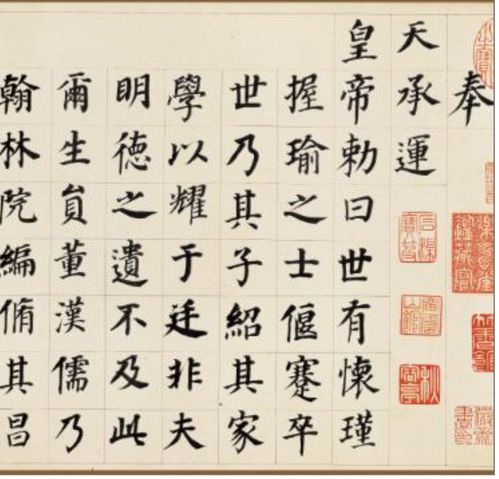 奉
天承運
皇帝勅曰世有懷瑾
握瑜之士偃蹇卒
世乃其子紹其家
學以耀于廷非夫
明德之遺不及此
爾生員董漢儒乃
翰林院編脩其昌